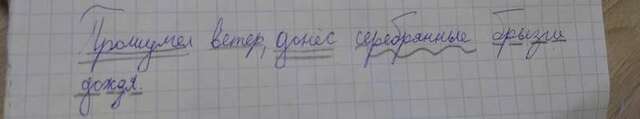 Прошумел ветер, донёс серебрянные брызги
дождя.